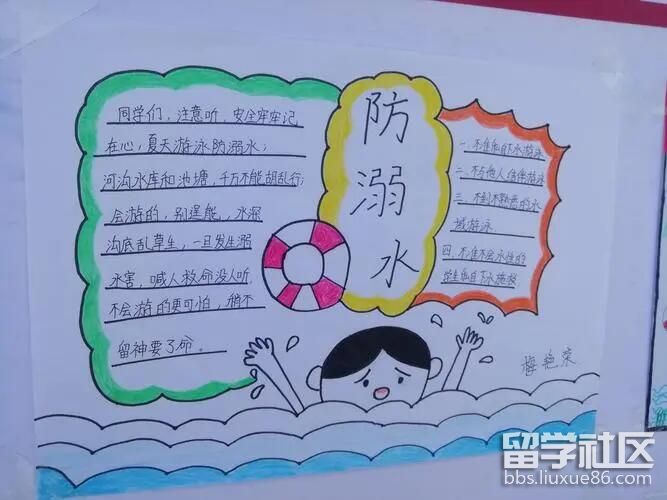 同学们，注意听，安全牢牢记
在心，夏天游泳防溺水；
河沟水库和池塘，千万不能胡乱行；
会游的，别逞能，水深
沟底乱草生，一旦发生溺
水害，喊人救命没人听，
不会游的更可怕，稍不
留神要了命。
防溺水
一、不准私自下水游泳
二、不与他人结伴游泳
三、不到不熟悉的水
域游泳
四、不准不会水性的
学生私自下水施救
梅艳荣
留学社区
bbs.liuxue86.com